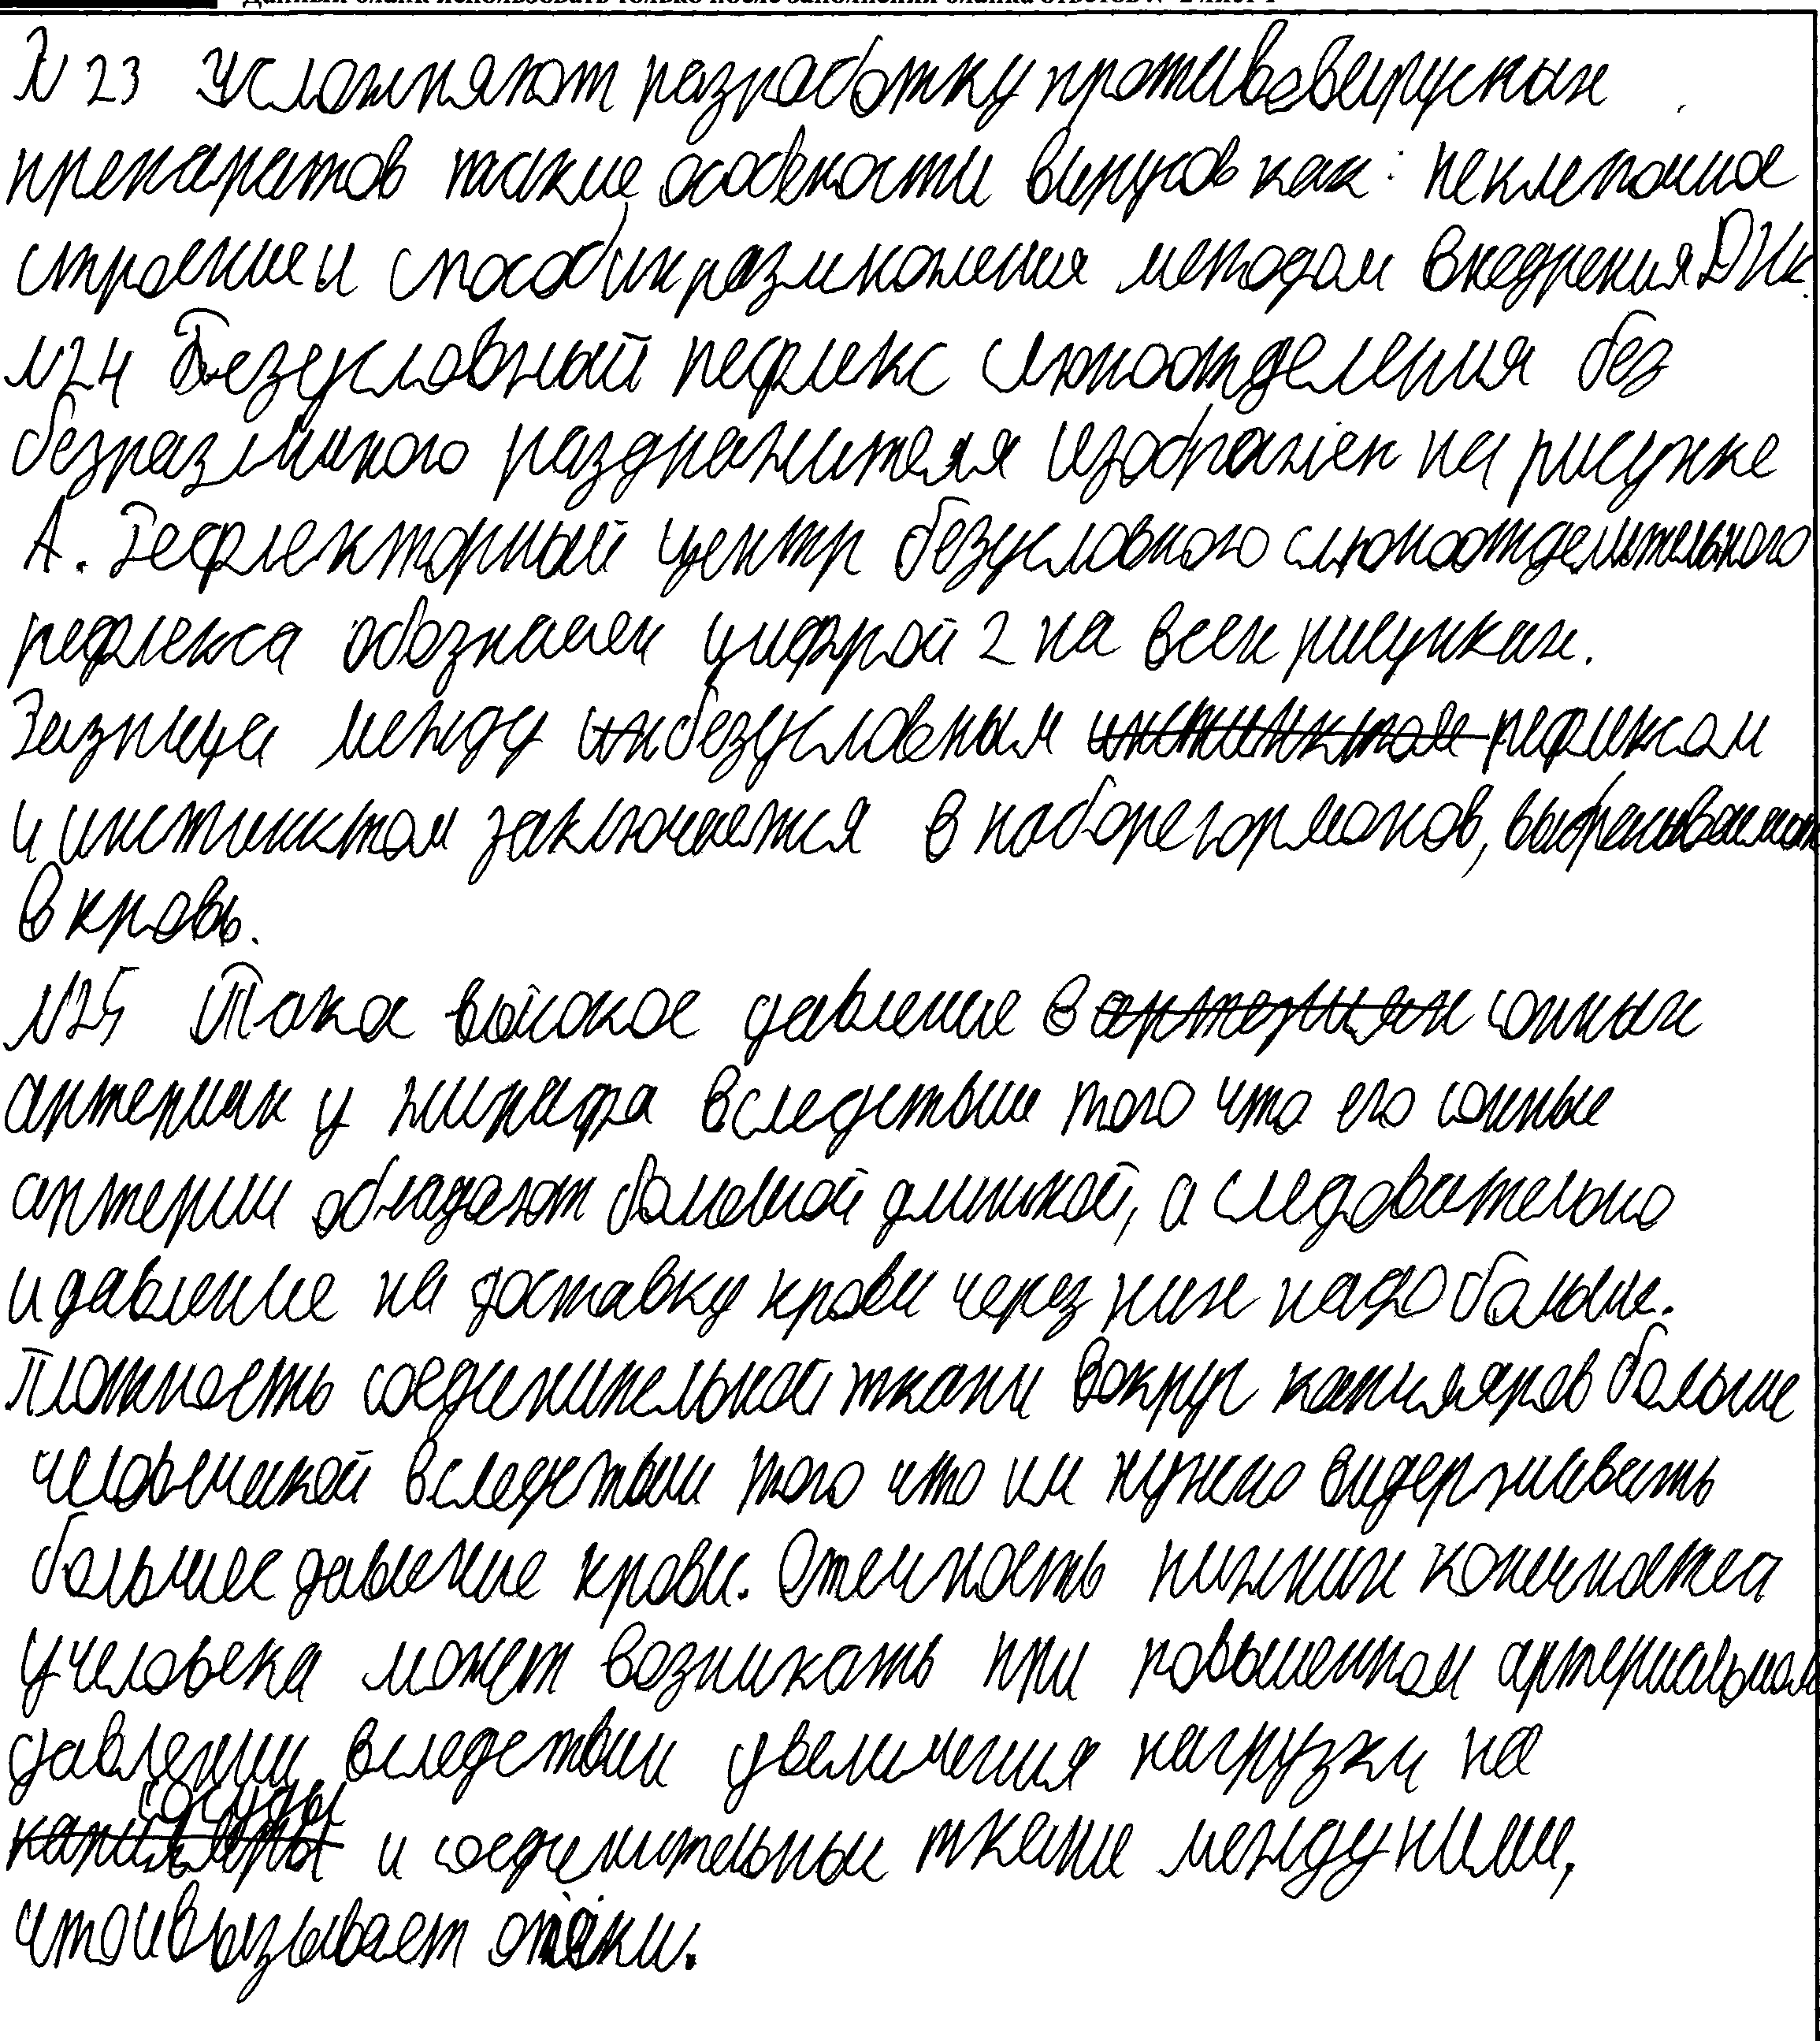 № 23 Усложняют разработку противовирусных
препаратов такие особености вирусов как: неклеточное
строение и способ их размножения методом внедрения ДНК.
№24 Безусловный рефлекс слюноотделения без
безразличного раздражителя изображён на рисунке
А. Рефлекторный центр безусловного слюноотделительного
рефлекса обозначен цифрой 2 на всех рисунках.
Разница между безусловным рефлексом
и инстинктом заключается в наборе гормонов,
в кровь.
№25 Такое высокое давление в сонных
артериях у жирафа вследствии того что его сонные
артерии обладают большой длинной, а следовательно
и давление на доставку крови через них надо больше.
Плотность соединительной ткани вокруг капиляров больше
человеческой вследствии того что им нужно выдерживать
большее давление крови. Отечность нижних конечностей
у человека может возникать при повышенном артериальном
давлении вследствии увеличения нагрузки на
сосуды
и соединительные ткани между ними,
что и вызывает отёки.